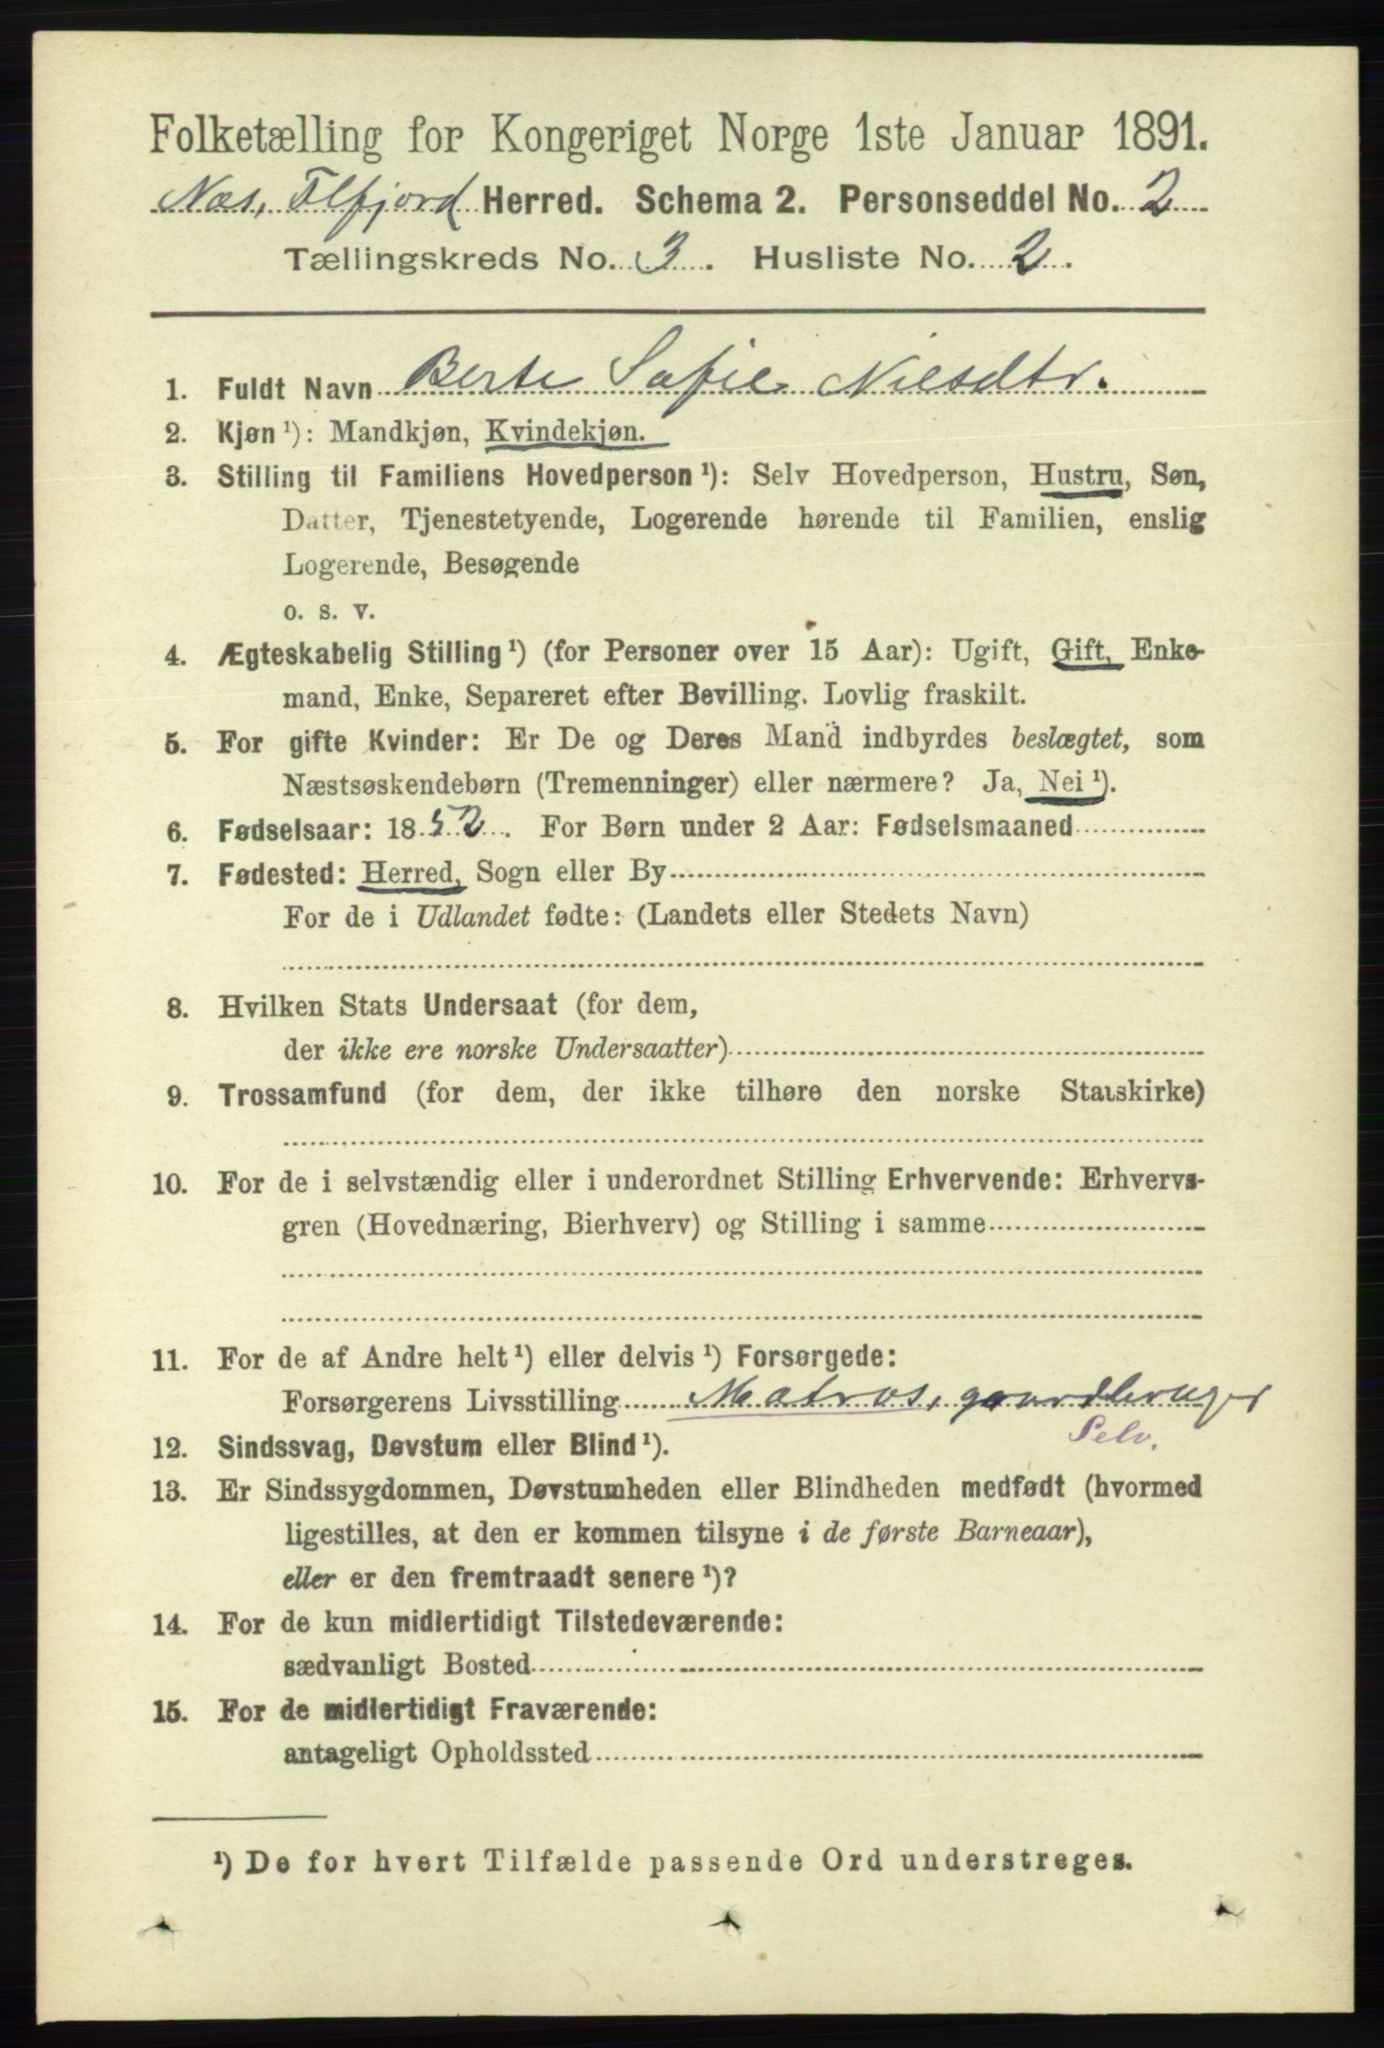 Folketælling for Kongeriget Norge 1ste Januar 1891.
Nes, Flfjord Herred. Schema 2. Personseddel No. 2
Tællingskreds No. 3. Husliste No. 2.
1. Fuldt Navn Berte Sofie Nilsdtr.
2. Kjøn ¹): Mandkjøn, Kvindekjøn.
3. Stilling til Familiens Hovedperson ¹): Selv Hovedperson, Hustru, Søn,
Datter, Tjenestetyende, Logerende hørende til Familien, enslig
Logerende, Besøgende
o. s. v.
4. Ægteskabelig Stilling ¹) (for Personer over 15 Aar): Ugift, Gift, Enke-
mand, Enke, Separeret efter Bevilling. Lovlig fraskilt.
5. For gifte Kvinder: Er De og Deres Mand indbyrdes beslægtet, som
Næstsøskendebørn (Tremenninger) eller nærmere? Ja, Nei ¹).
6. Fødselsaar: 1852. For Børn under 2 Aar: Fødselsmaaned
7. Fødested: Herred, Sogn eller By
For de i Udlandet fødte: (Landets eller Stedets Navn)
8. Hvilken Stats Undersaat (for dem,
der ikke ere norske Undersaatter)
9. Trossamfund (for dem, der ikke tilhøre den norske Statskirke)
10. For de i selvstændig eller i underordnet Stilling Erhvervende: Erhvervs-
gren (Hovednæring, Bierhverv) og Stilling i samme
11. For de af Andre helt ¹) eller delvis ¹) Forsørgede:
Forsørgerens Livsstilling Matros, gaardbruger
Selv.
12. Sindssvag, Døvstum eller Blind ¹).
13. Er Sindssygdommen, Døvstumheden eller Blindheden medfødt (hvormed
ligestilles, at den er kommen tilsyne i de første Barneaar),
eller er den fremtraadt senere ¹)?
14. For de kun midlertidigt Tilstedeværende:
sædvanligt Bosted
15. For de midlertidigt Fraværende:
antageligt Opholdssted
¹) De for hvert Tilfælde passende Ord understreges.